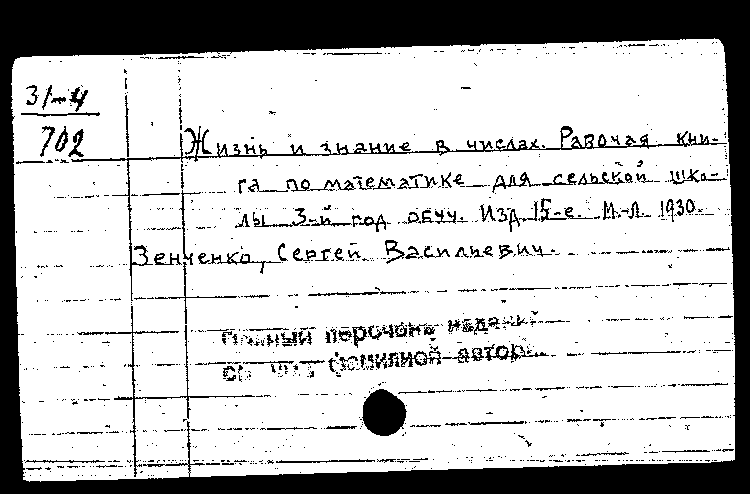 31-4
702
Жизнь и знание в числах. Рабочая кни-
га по математике для сельской шко-
лы 3-й год обуч. Изд. 15-е. М.-Л. 1930.
Зенченко, Сергей Васильевич.
Полный перечень издани
фамилией автор